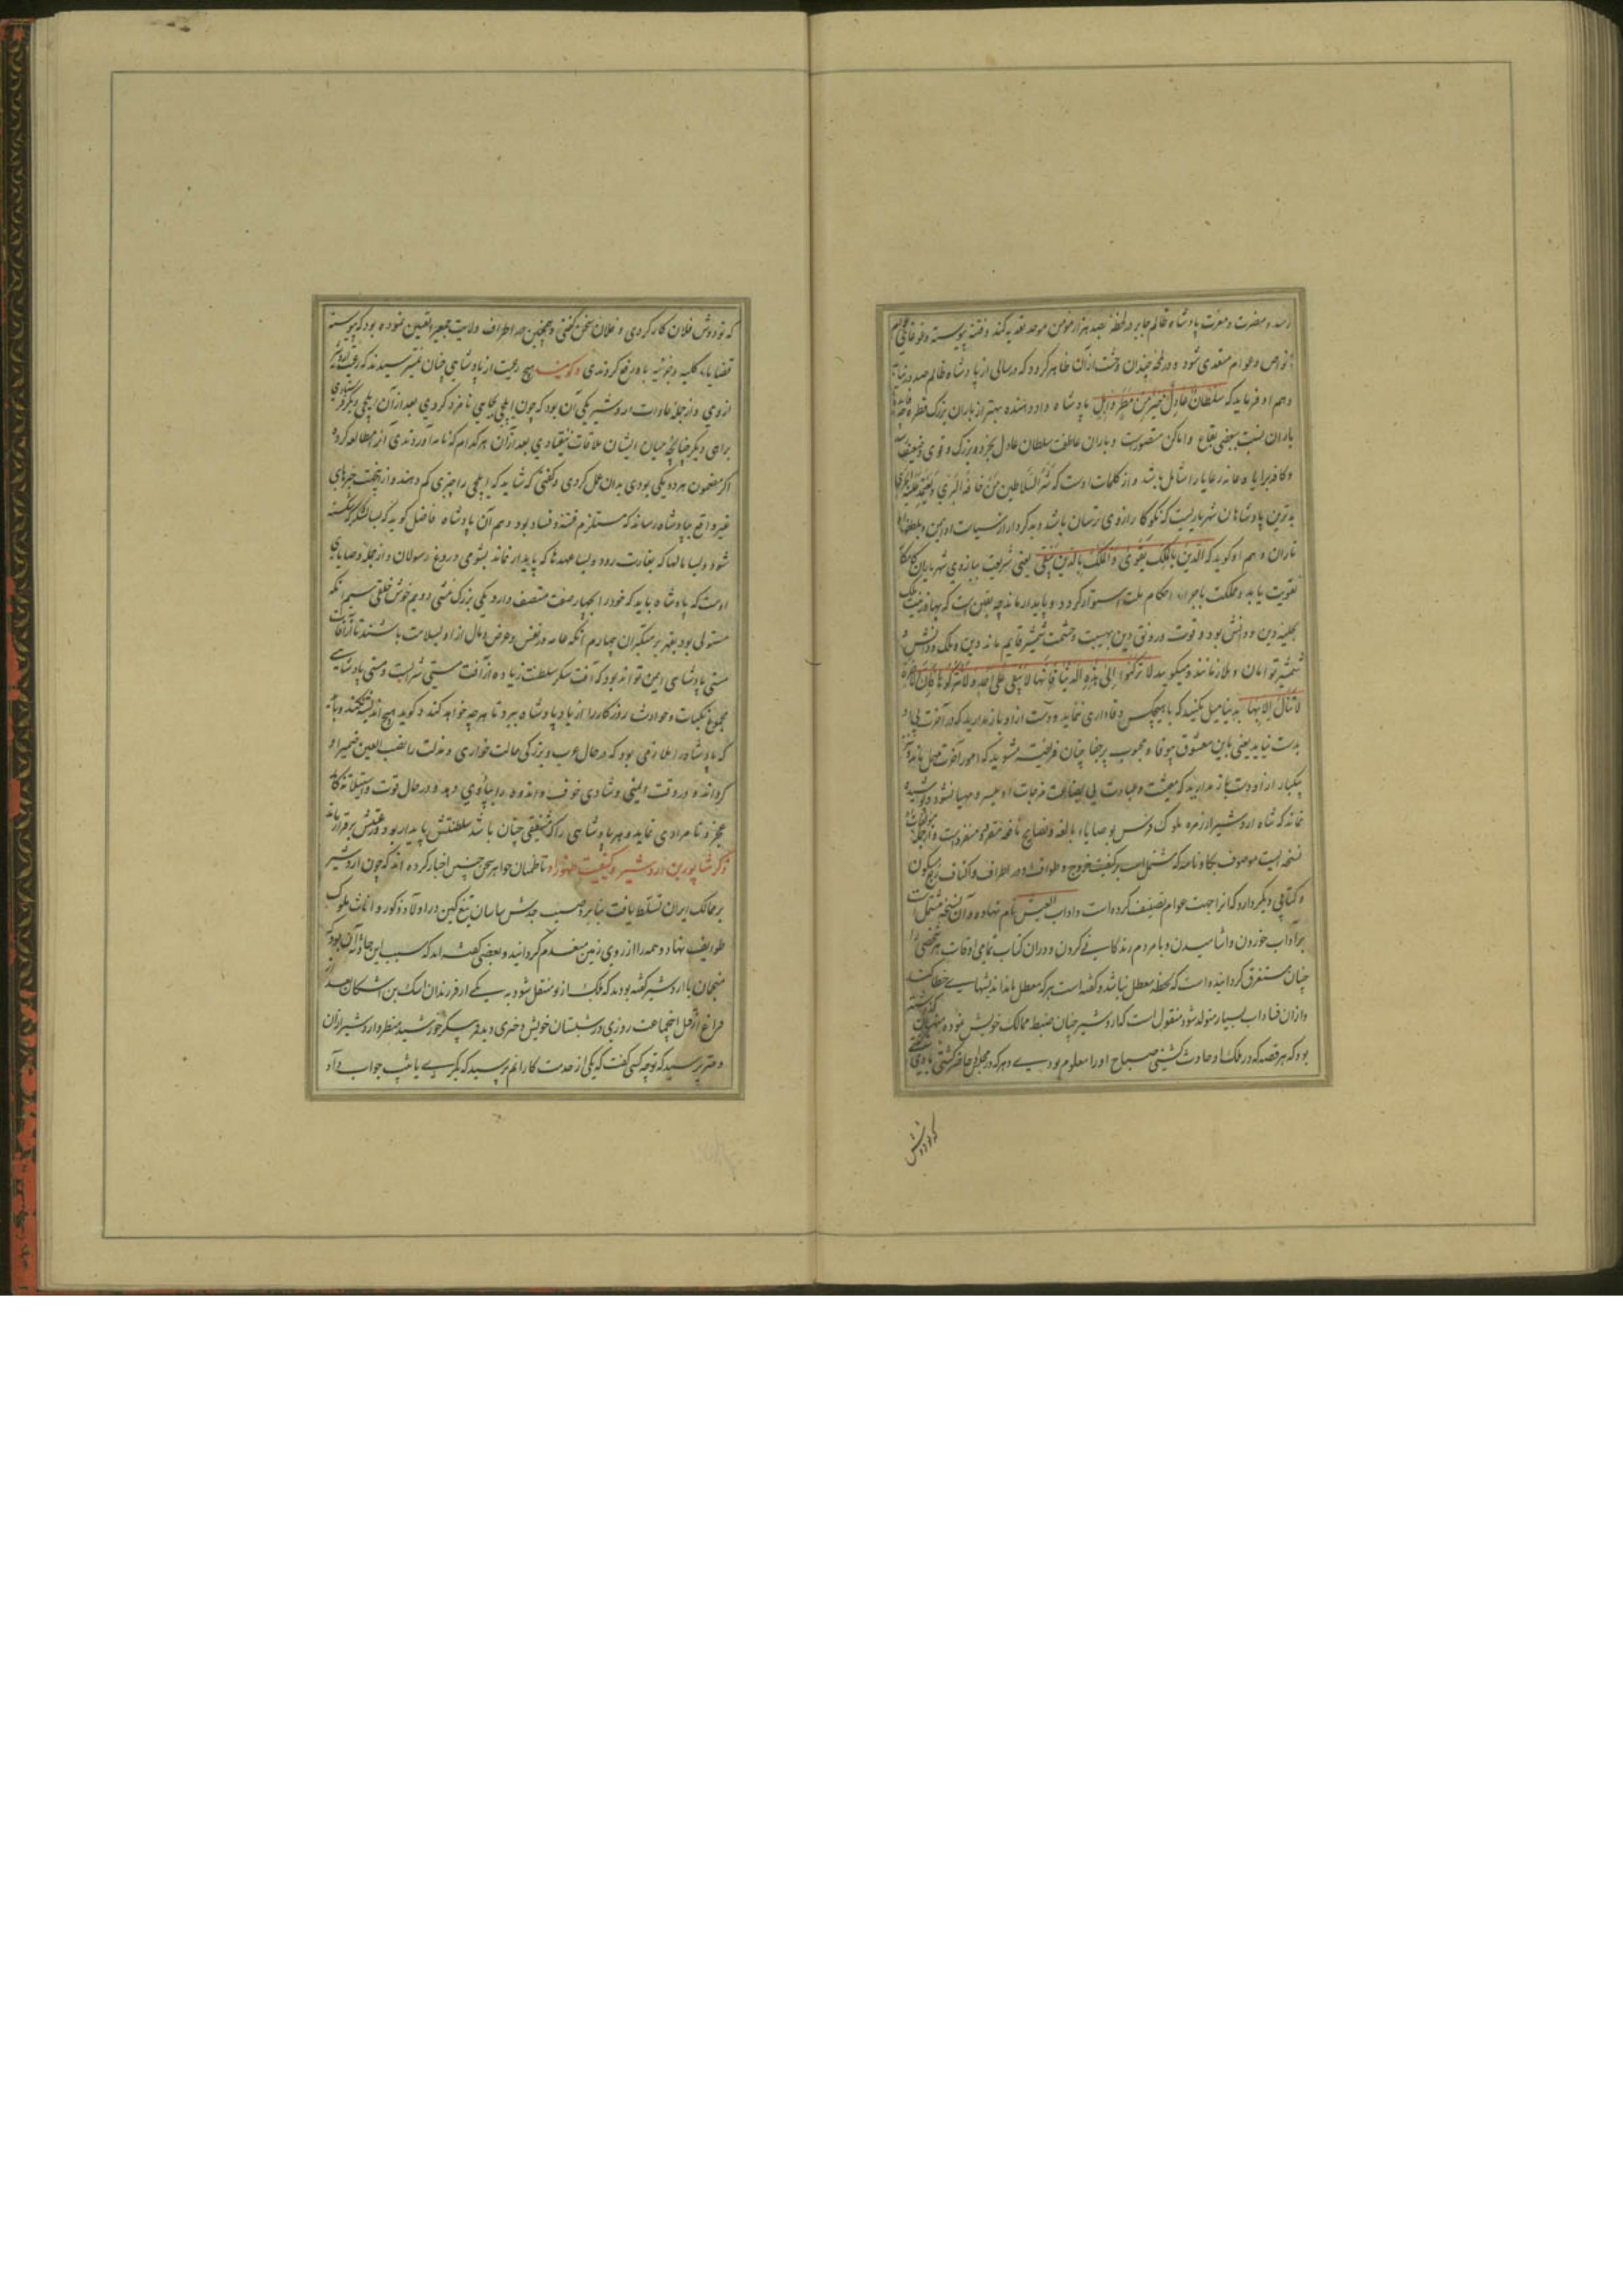 رسد و مضرت و معرت پادشاه ظالم جابر در لحظه بصد هزار مومن موحد تعدیه کند و فتنه پیوسته
بخواص و عوام متعدی شود و در لمحه چندان وحشت از آن ظاهر کردد که در سالی از پادشاه ظالم صد
و هم او فرماید که سلطان عادل خیر من مطر وابل پادشاه داد دهنده بهتر از باران بزرک قطره
باران نسبت ببعضی بقاع و اماکن مقصورست و باران عاطفت سلطان عادل بخرد و بزرک و قوی و ضعیف
و کافه برایا و عامه رعایا را شامل باشد و از کلمات اوست که شر السلاطین من خافه البری
بدترین پادشاهان شهریاریست که نکوکار از وی ترسان باشد و بدکردار از سیاست او ایمن
تازان و هم او کوید که الدین بالملک یقوی و الملک بالدین یبقی یعنی شریعت ببازوی شهریاران
تقویت یابد و مملکت باجراء احکام ملت استوار کردد و پایدار ماند چه یقین است که بهاء و زینت ملک
بحلیه دین و دانش بود و قوت و رونق دین بهیبت و حشمت شمشیر قایم ماند دین و ملک و دانش و
شمشیر توامان و متلازمانند و میکوید لا ترکنوا الی هذه الدنیا فانها لا تبقی علی احد و لا تترکوها فان الاخرة
لا تنال الا بها بدنیا میل مکنید که با هیچکس وفاداری ننماید و دست از او باز ندارید که آخرت بی او
بدست نیاید یعنی باین معشوق بیوفا و محبوب پرجفا چنان فریفته مشوید که امور آخرت مهمل ماند و نیز
بیکبار از او دست باز ندارید که معیشت و عبادت بی بضاعت مزجات او میسر و مهیا نشود و پوشیده
نماند که شاه اردشیر از زمره ملوک فرس بوصایاء بالغه و نصایح نافعه متفرد و منفردست و از جمله
نسخه ایست موسوم بکارنامه که مشتمل است بر کیفیت خروج و طواف او در اطراف و اکناف ربع مسکون
و کتابی دیکر دارد که آنرا جهت عوام تصنیف کرده است و اداب العیش نام نهاده و آن نسخه مشتمل است
بر آداب خوردن و اشامیدن و با مردم زندکانی کردن و در ان کتاب تمامی اوقات هر شخصی را
چنان مستغرق کردانیده است که لحظه معطل نباشد و کفته است هر که معطل ماند اندیشهای خطا کند
و از ان فسادات بسیار متولد شود منقول است که اردشیر چنان ضبط ممالک خویش نموده
بود که هر قصه که در ملک او حادث کشتی صباح او را معلوم بودی و هر که در مجلس او حاضر کشتی با وی کفتی
که تو دوش
که تو دوش فلان کار کردی و فلان سخن کفتی و همچنین در اطراف ولایت جمعی را تعیین نموده بود که پیوسته
قضایاء کلیه و جزئیه باو رفع کردندی و کویند هیچ رعیت از پادشاهی چنان نمی ترسیدند که رعیت اردشیر
از وی و از جمله عادات اردشیر یکی آن بود که چون ایلچی بجایی نامزد کردی بعد از آن ایلچی دیکر فرستادی
براهی دیکر چنانچه میان ایشان ملاقات نیفتادی بعد از آن هر کدام که نامه آوردندی آنرا مطالعه کرده
اکر مضمون هر دو یکی بودی بدان عمل کردی و کفتی که شاید که ایلچی را چیزی کم دهند و از این جهت خبرهای
غیر واقع بپادشاه رساند که مستلزم فتنه و فساد بود و هم آن پادشاه فاضل کوید که بسا لشکر که شکسته
شود و بسا مالها که بغارت رود و بسا عهدها که پایدار نماند بشومی دروغ رسولان و از جمله وصایای
اوست که پادشاه باید که خود را بچهار صفت متصف دارد یکی بزرک منشی دویم خوش خلقی سیم آنکه
مستولی بود بقهر بر متکبران چهارم آنکه عامه در نفس و عرض و مال از او بسلامت باشند تا از آفات
مستی پادشاهی ایمن تواند بود که آفت سکر سلطنت زیاده از آفت مستی شرابست و مستی پادشاهی
مجموع نکبات و حوادث روزکار را از یاد پادشاه ببرد تا هر چه خواهد کند و کوید و هیچ اندیشه نکند
که پادشاه را لازم بود که در حال عز و بزرکی حالت خواری و مذلت را نصب العین ضمیر او
کرداند و در وقت ایمنی و شادی خوف و اندوه را بیاد وی دهد و در حال قوت و استیلا تذکار
عجز و نامرادی نماید و هر پادشاهی را که مشفقی چنان باشد سلطنتش پایدار بود و رعیتش برقرار ماند
ذکر شاپور بن اردشیر و کیفیت ظهور او ناظمان جواهر سخن چنین اخبار کرده اند که چون اردشیر
بر ممالک ایران تسلط یافت بنابر وصیت جدش ساسان تیغ کین در اولاد ذکور و اناث ملوک
طوایف نهاد و همه را از روی زمین معدوم کردانید و بعضی کفته اند که سبب این حادثه آن بود که
منجمان با اردشیر کفته بودند که ملک از تو منتقل شود به یکی از فرزندان اشک بن اشکان بعد از
فراغ از قتل این جماعت روزی در شبستان خویش دختری دید پری پیکر خورشید منظر و اردشیر از ان
دختر پرسید که تو چه کسی کفت که یکی از خدمت کارانم پرسید که بکری یا ثیب جواب داد